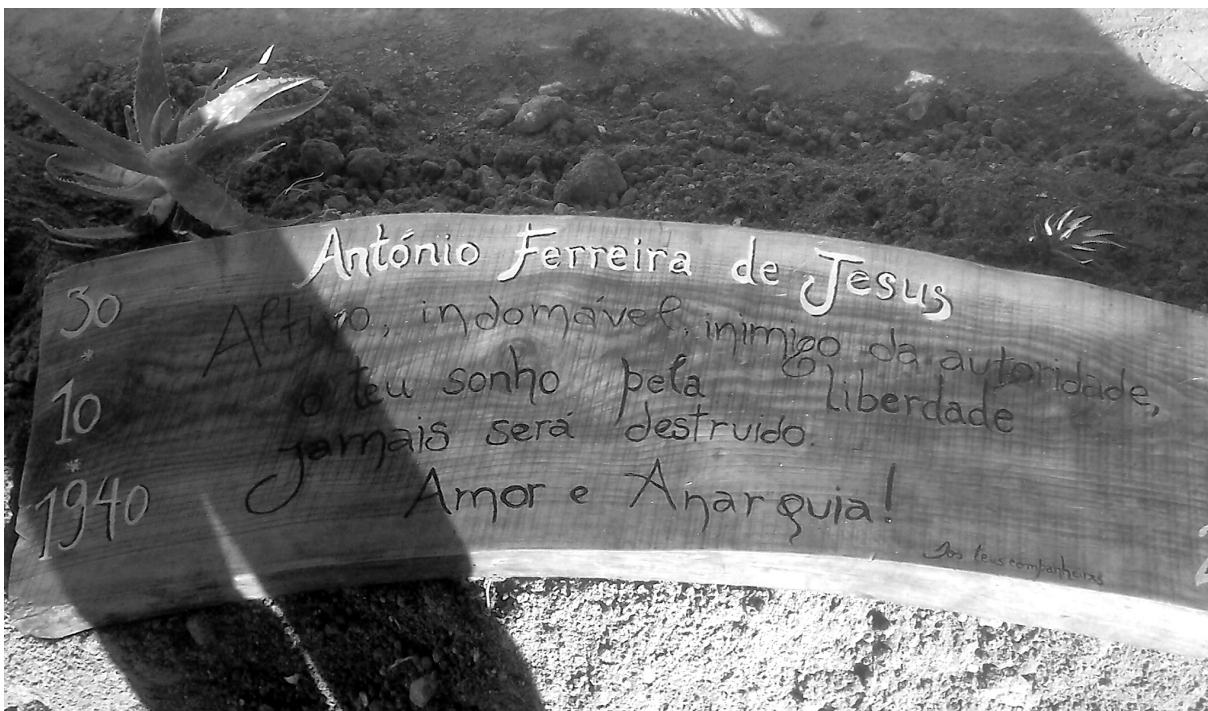 António Ferreira de Jesus
30
*
10
*
1940
Altivo, indomável, inimigo da autoridade,
o teu sonho pela liberdade
jamais será destruido.
Amor e Anarquia!
Dos teus companheirxs